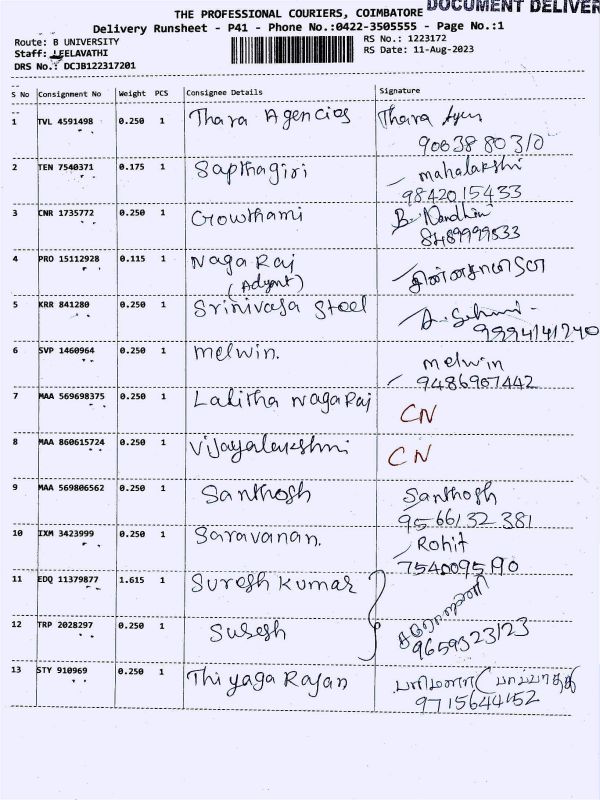 DOCUMENT DELIVER
THE PROFESSIONAL COURIERS, COIMBATORE
Delivery Runsheet - P41 - Phone No.:0422-3505555 - Page No.:1
Route: B UNIVERSITY RS No.: 1223172
Staff: LEELAVATHI RS Date: 11-Aug-2023
DRS No.: DCJB122317201
S No Consignment No Weight PCS Consignee Details Signature
1 TVL 4591498 0.250 1 Thara Agencies Thara
90638 80310
2 TEN 7540371 0.175 1 Sapthagiri mahalakshi
9842015433
3 CNR 1735772 0.250 1 Gowthami B. Nandhin
8489999533
4 PRO 15112928 0.115 1 Naga Raj
(Advant)
5 KRR 841280 0.250 1 Srinivasa Steel
9994141240
6 SVP 1460964 0.250 1 melwin. melwin
9486907442
7 MAA 569698375 0.250 1 Lalitha nagaraj CN
8 MAA 860615724 0.250 1 Vijayalakshmi CN
9 MAA 569806562 0.250 1 Santhosh Santhosh
95661 32 381
10 IXM 3423999 0.250 1 Saravanan. Rohit
7540095190
11 EDQ 11379877 1.615 1 Suresh Kumar
12 TRP 2028297 0.250 1 Suresh
9659323123
13 STY 910969 0.250 1 Thiyaga Rajan
9715644152